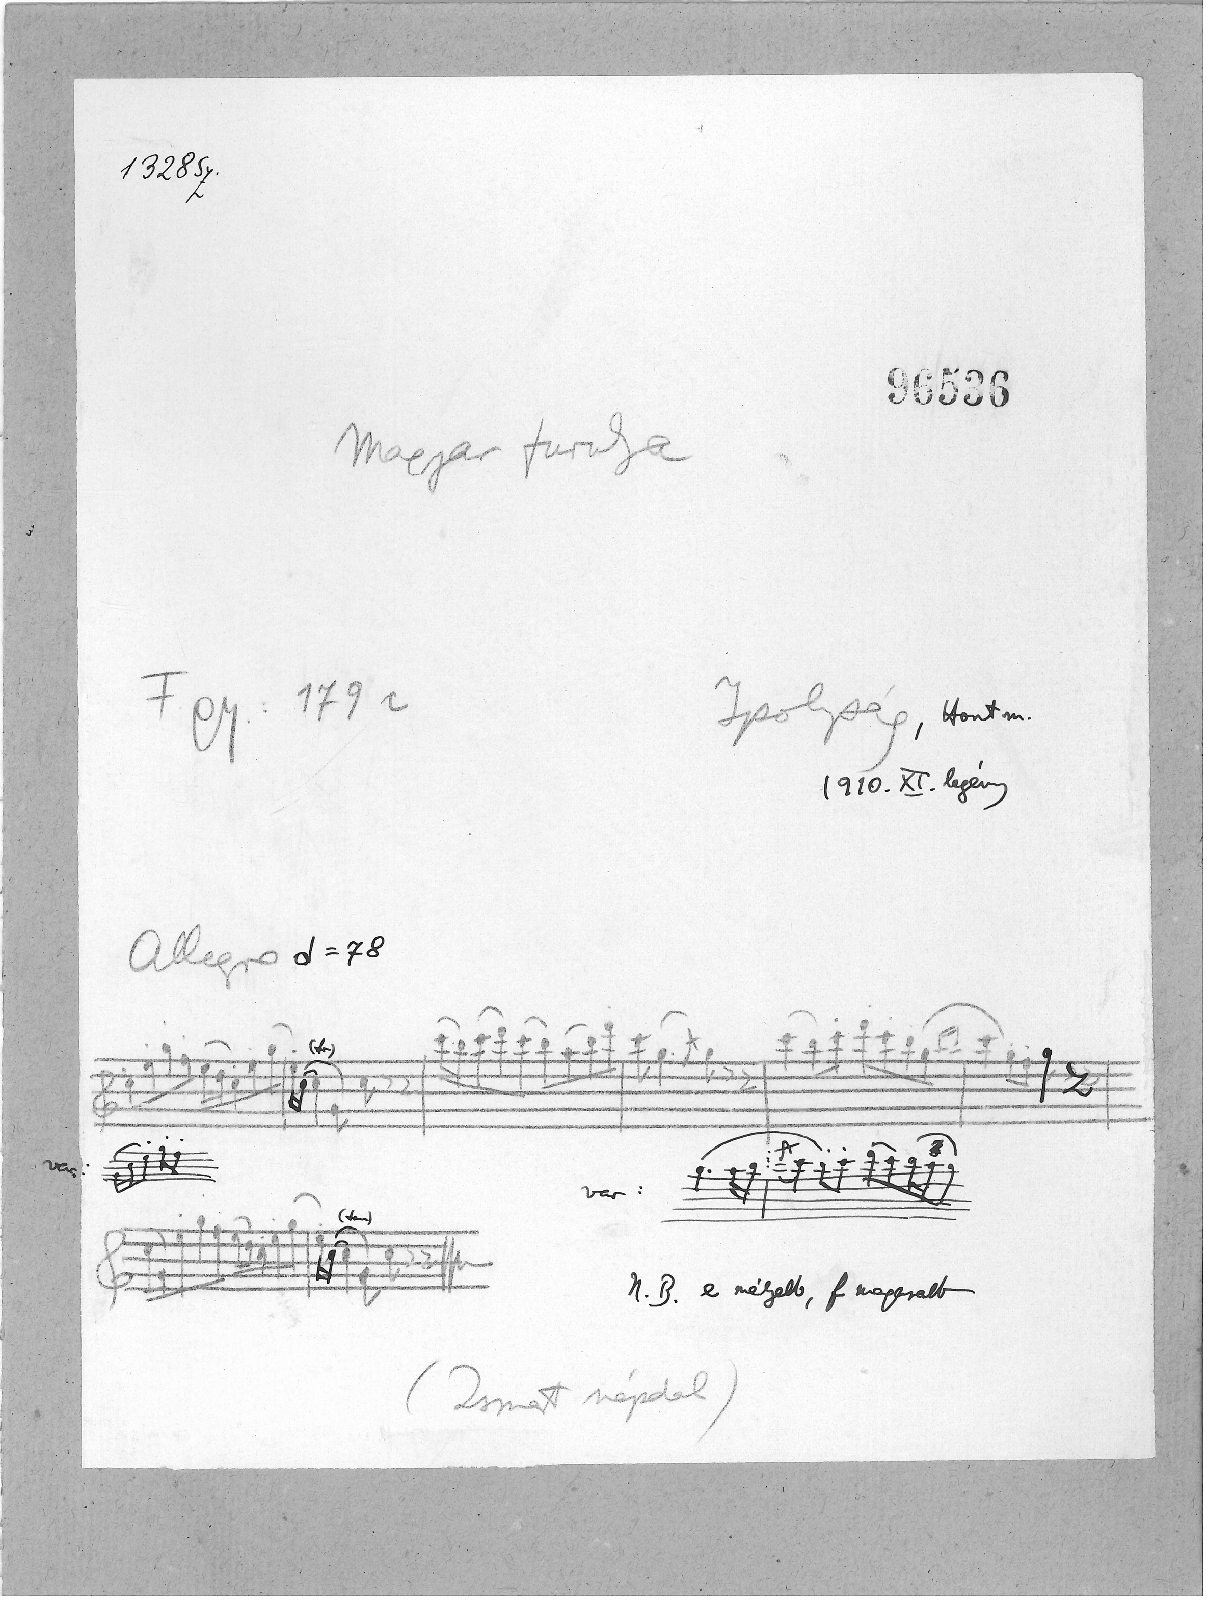 1328
96536
Magyar furulya
F gy. : 179 r
Ipolyság, Hont m.
1910. XI. legény
Allegro d = 78
var:
var :
N. B. e mélyebb, f magasabb
(Ismert népdal)